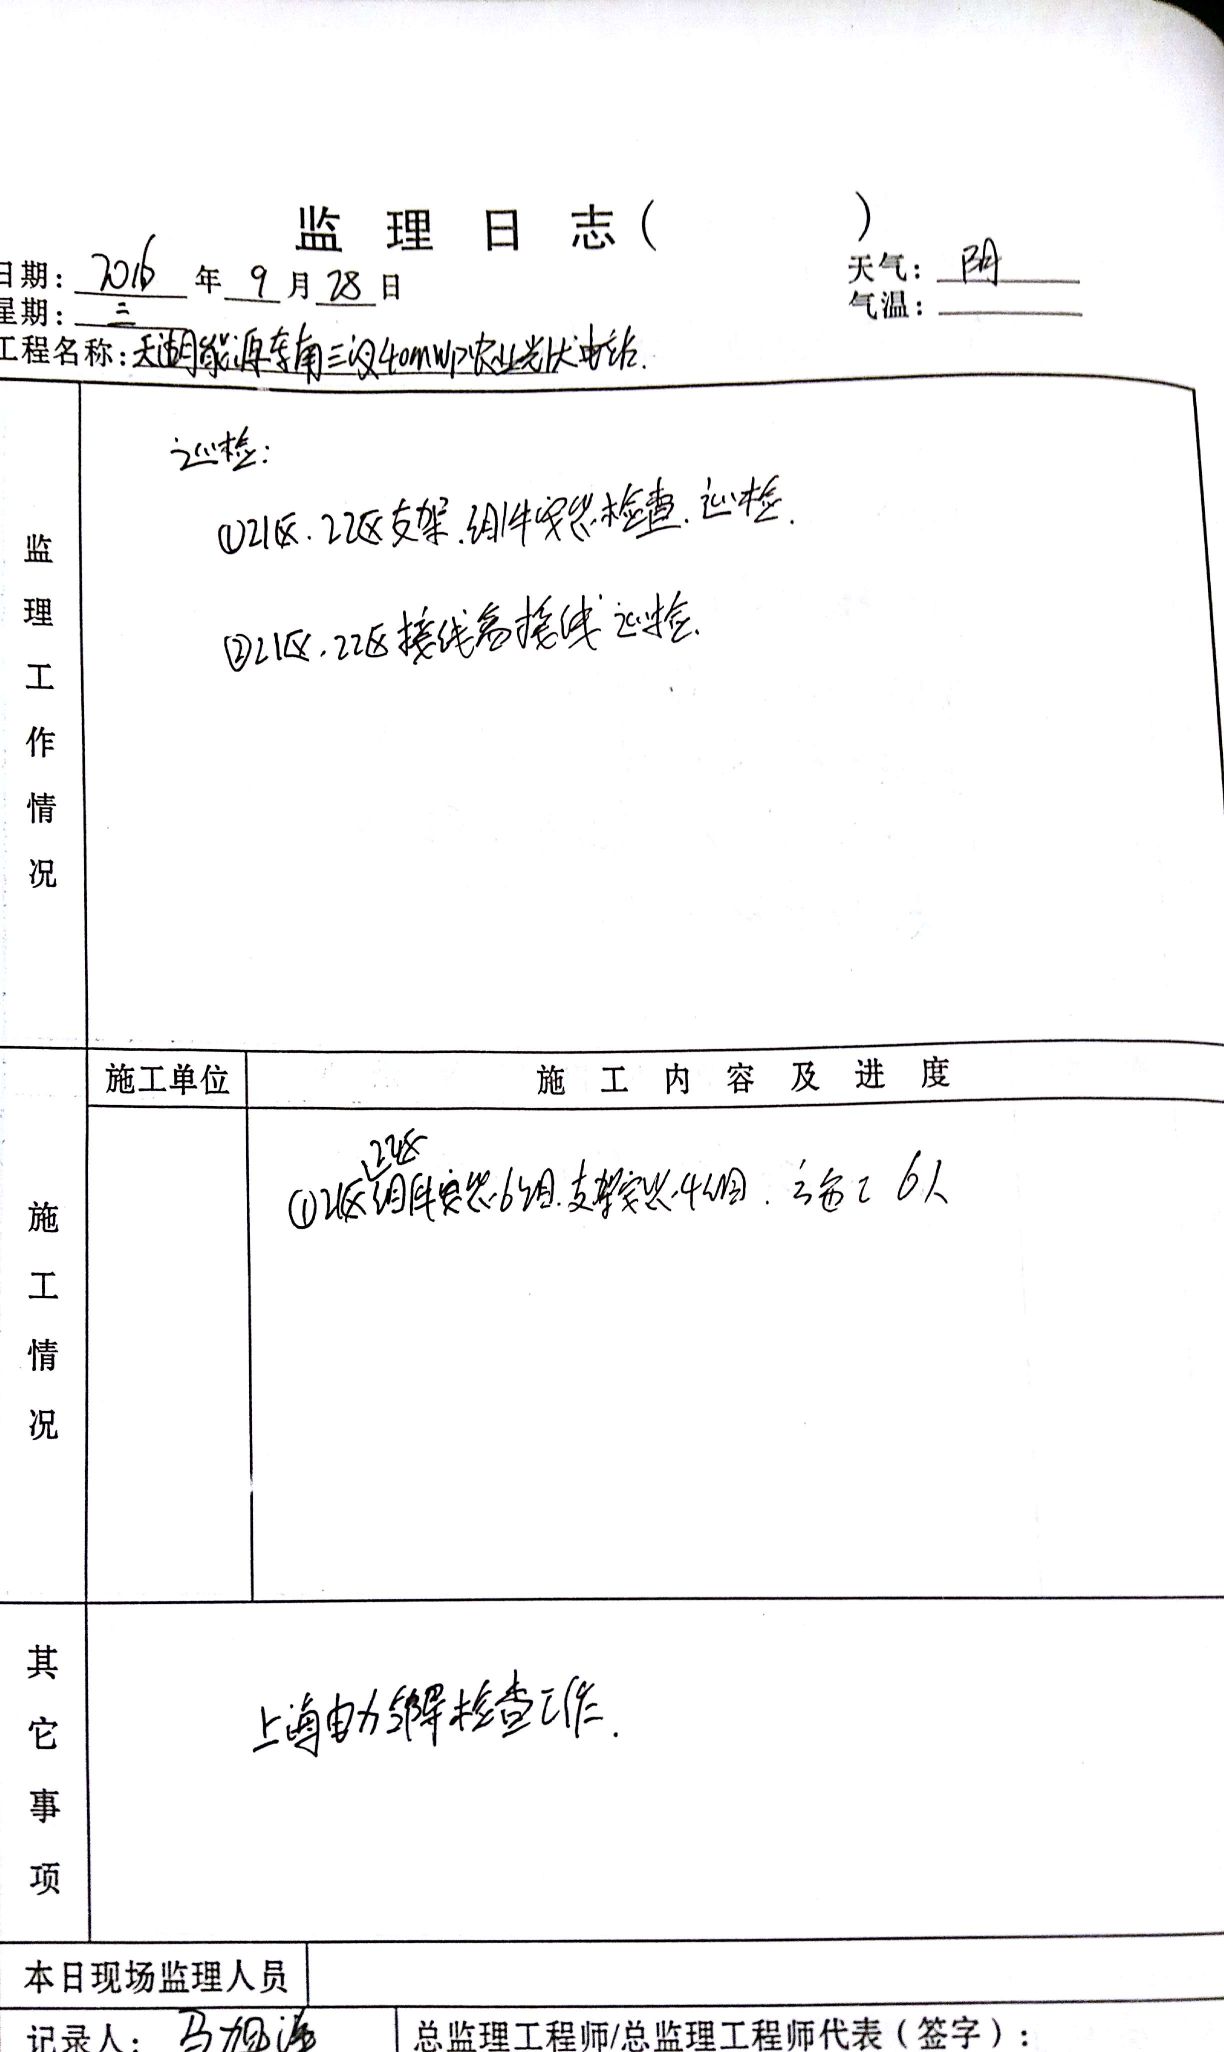 监 理 日 志（ ）
日期： 2016 年 9 月 28 日 天气： 阴
星期： 三 气温：
工程名称：天湖能源东南三汊40mWp农业光伏电站.
监理工作情况
巡检：
①21区.22区支架.组件安装检查.巡检.
②21区.22区接线盒接线巡检.
施工单位 施 工 内 容 及 进 度
施工情况
22区
①21区组件安装6组.支架安装4组. 施工 6人
其它事项
上海电力领导检查工作.
本日现场监理人员
记录人： 马旭海 总监理工程师/总监理工程师代表（签字）：